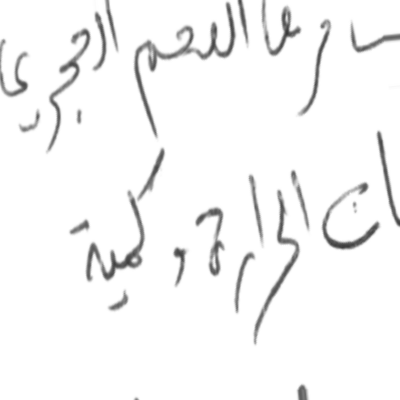 الفحم الحجري
ات الحرارة و كمية